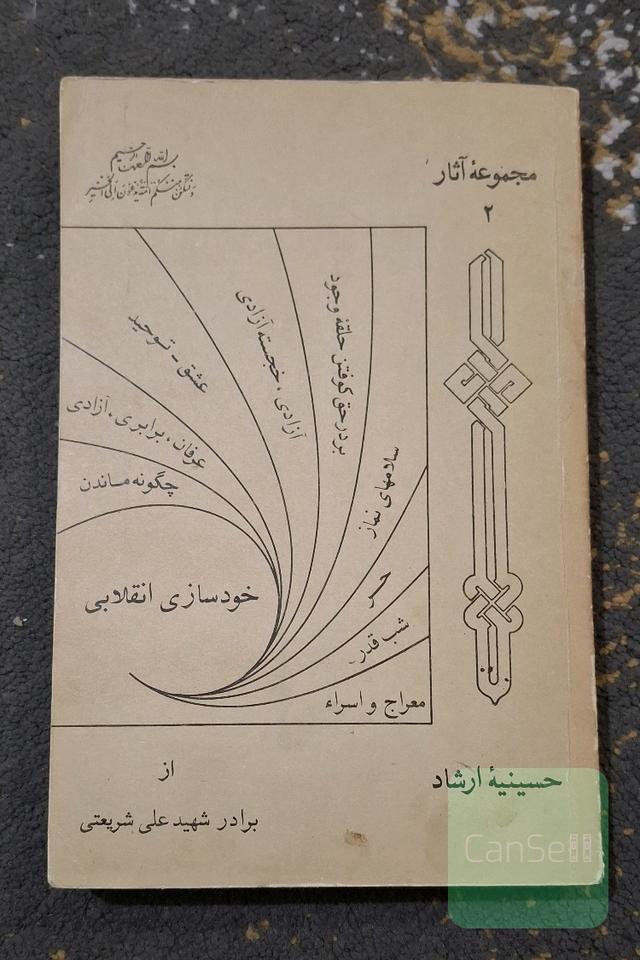 بسم الله الرحمن الرحیم
مجموعهٔ آثار
۲
بر در حق کوفتن حلقهٔ وجود
آزادی، خجسته آزادی
عشق - توحید
عرفان، برابری، آزادی
چگونه ماندن
سلامهای نماز
حر
شب قدر
خودسازی انقلابی
معراج و اسراء
از
برادر شهید علی شریعتی
حسینیهٔ ارشاد
CanSell